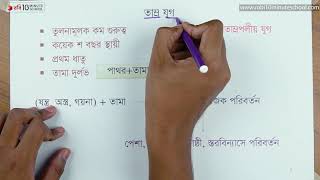 রবি 10 MINUTE SCHOOL
www.robi10minuteschool.com
তাম্র যুগ
তুলনামূলক কম গুরুত্ব
তাম্রপলীয় যুগ
কয়েক শ বছর স্থায়ী
প্রথম ধাতু
তামা দুর্লভ
পাথর+তাম
(যন্ত্র, অস্ত্র, গয়না) + তামা
জক পরিবর্তন
পেশা,
ষ্ঠী, স্তরবিন্যাসে পরিবর্তন